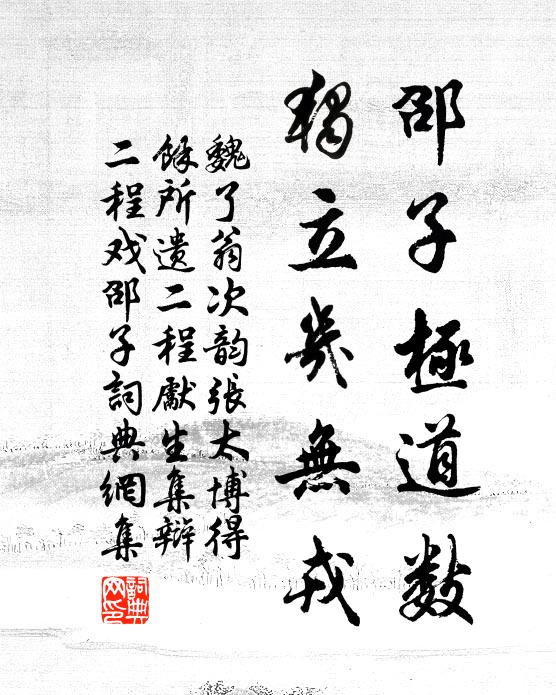 邵子極道數
獨立幾無戎
魏了翁次韵張太博得
餘所遺二程獻生集辯
二程戏邵子詞典網集
詞典
网印